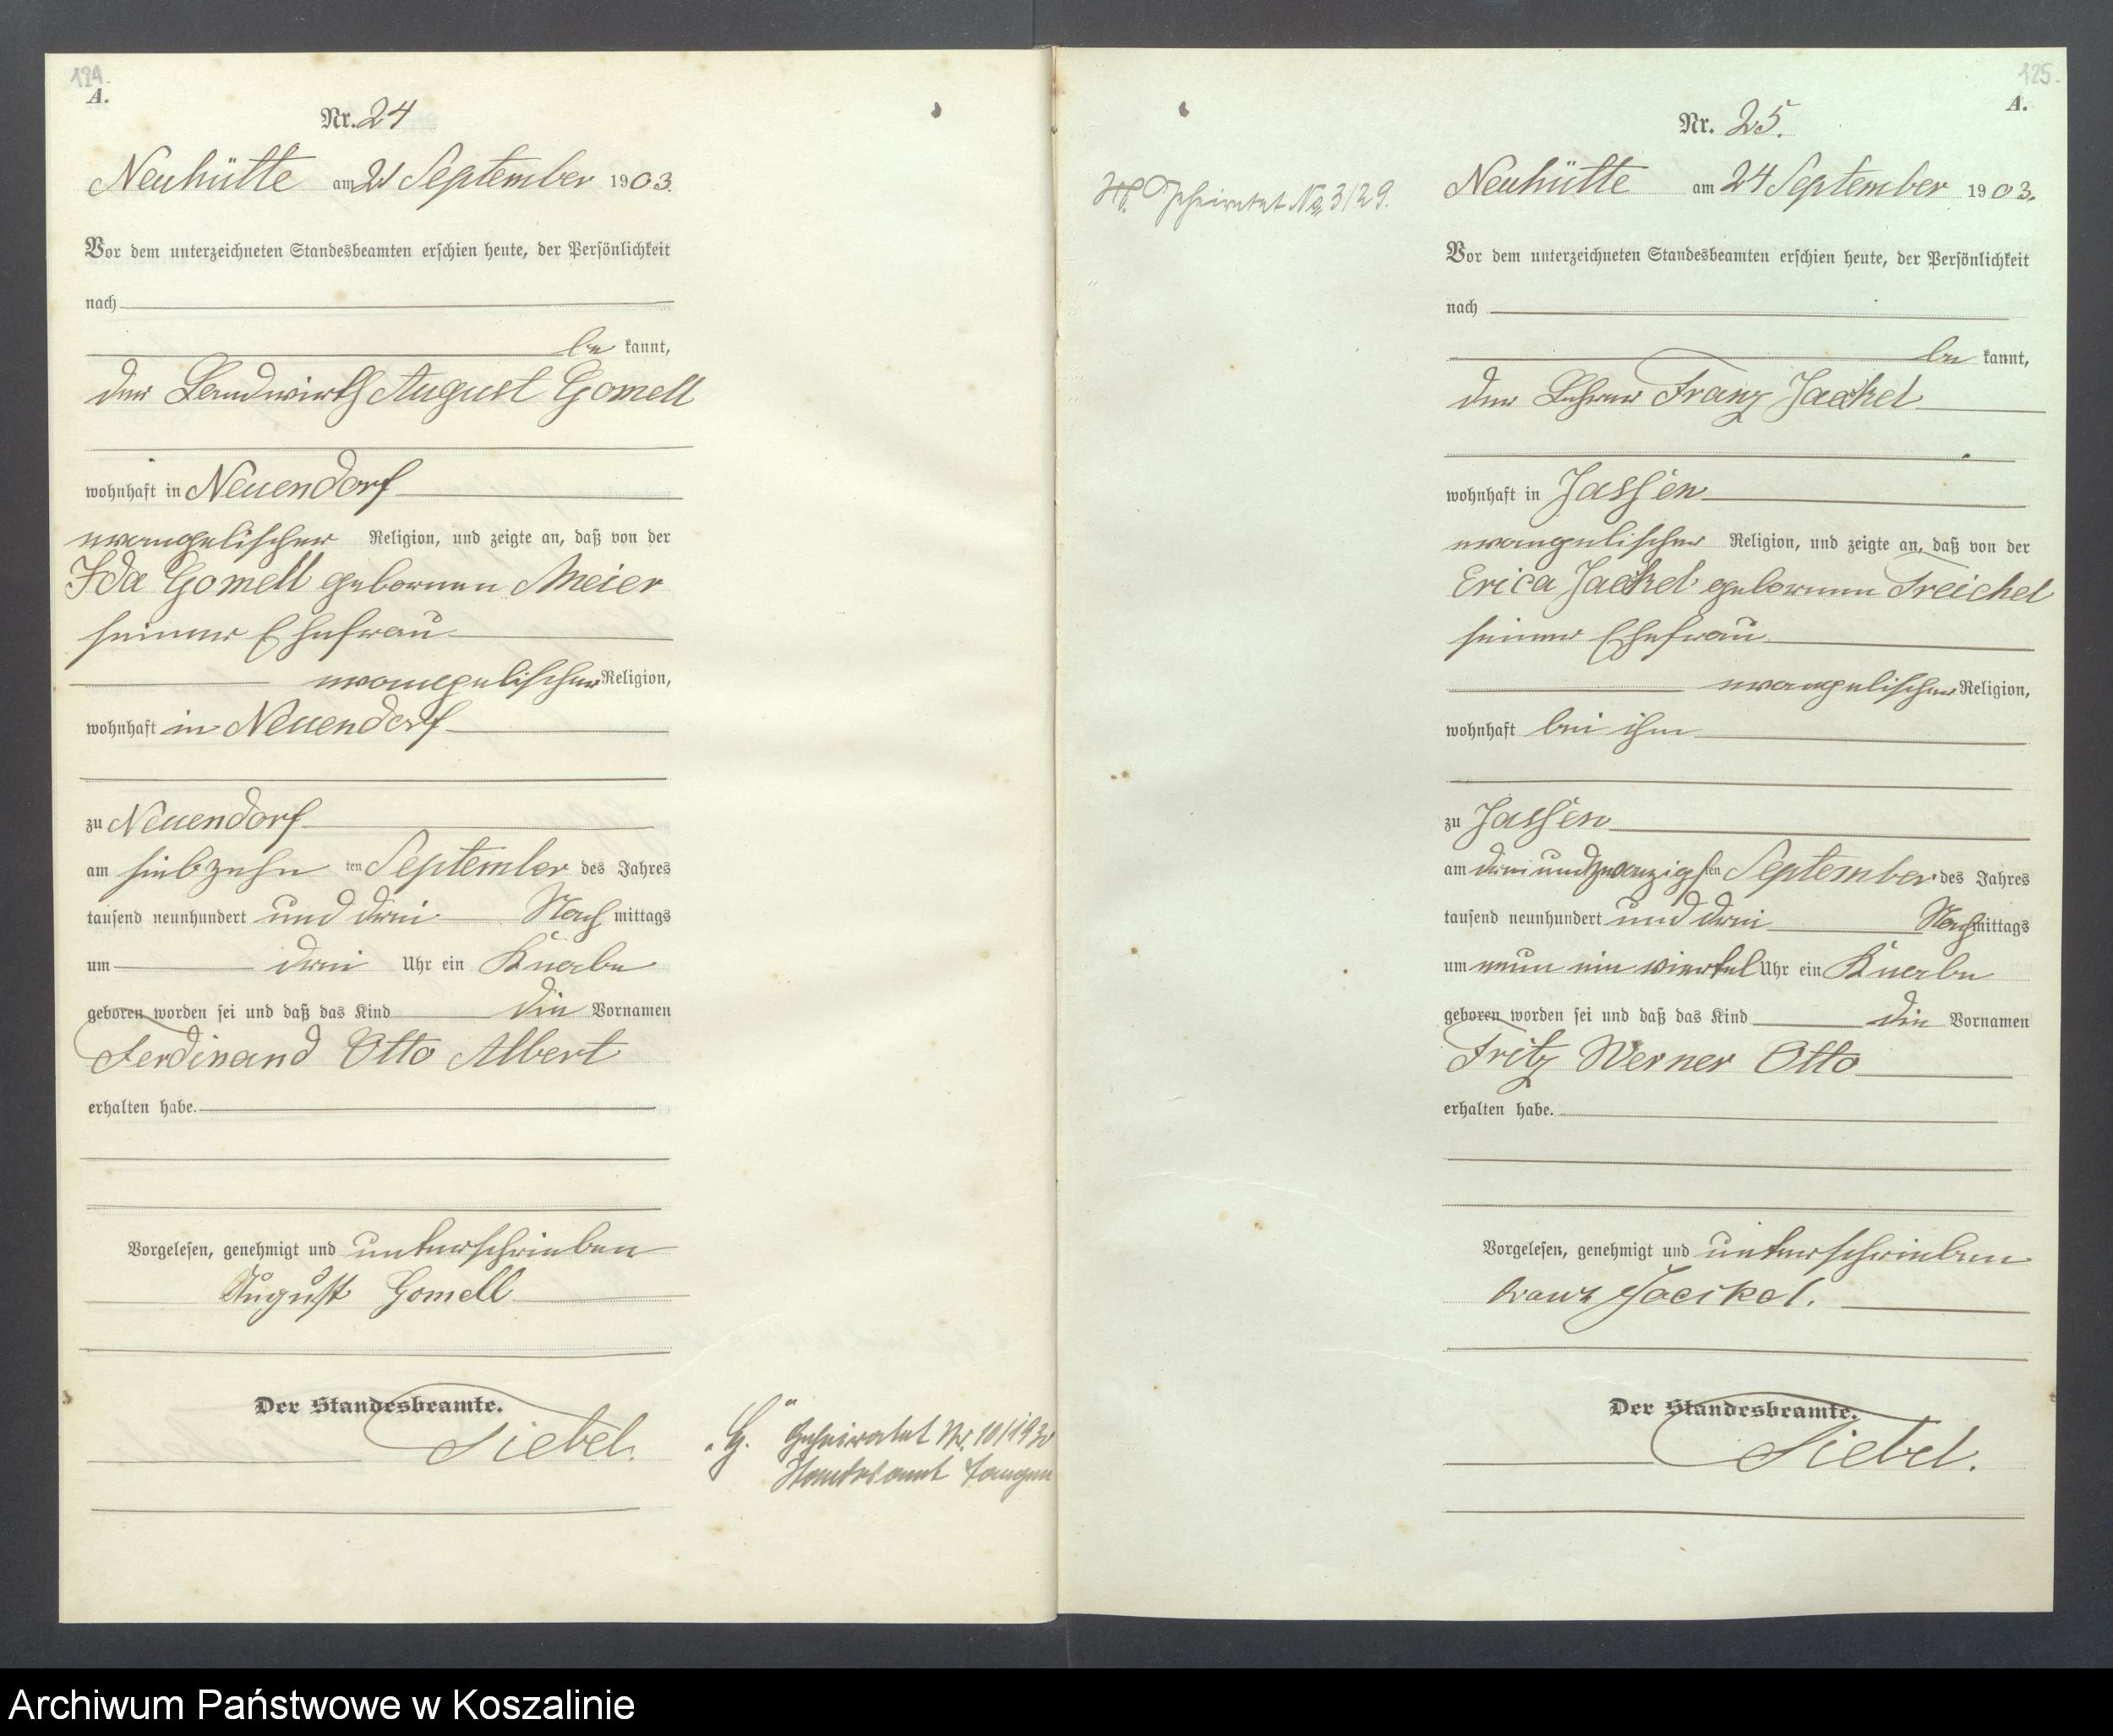 124.
A.
Nr. 24
Neuhütte am 21 September 1903.
Vor dem unterzeichneten Standesbeamten erschien heute, der Persönlichkeit
nach
be kannt,
der Landwirth August Gomell
wohnhaft in Neuendorf
evangelischer Religion, und zeigte an, daß von der
Ida Gomell geborenen Meier
seiner Ehefrau
evangelischer Religion,
wohnhaft in Neuendorf
zu Neuendorf
am siebzehn ten September des Jahres
tausend neunhundert und drei Nach mittags
um drei Uhr ein Knabe
geboren worden sei und daß das Kind die Vornamen
Ferdinand Otto Albert
erhalten habe.
Vorgelesen, genehmigt und unterschrieben
August Gomell
Der Standesbeamte.
Siebel.
"G." Geheiratet Nr. 10/1930
Standesamt
125.
A.
Nr. 25.
Geheiratet No 3/29.
Neuhütte am 24 September 1903.
Vor dem unterzeichneten Standesbeamten erschien heute, der Persönlichkeit
nach
be kannt,
der Lehrer Franz Jaeckel
wohnhaft in Jassen
evangelischer Religion, und zeigte an, daß von der
Erica Jaeckel geborenen Treichel
seiner Ehefrau
evangelischer Religion,
wohnhaft bei ihm
zu Jassen
am dreiundzwanzigsten September des Jahres
tausend neunhundert und drei Nachmittags
um neun ein viertel Uhr ein Knabe
geboren worden sei und daß das Kind die Vornamen
Fritz Werner Otto
erhalten habe.
Vorgelesen, genehmigt und unterschrieben
Franz Jaeckel.
Der Standesbeamte.
Siebel.
Archiwum Państwowe w Koszalinie